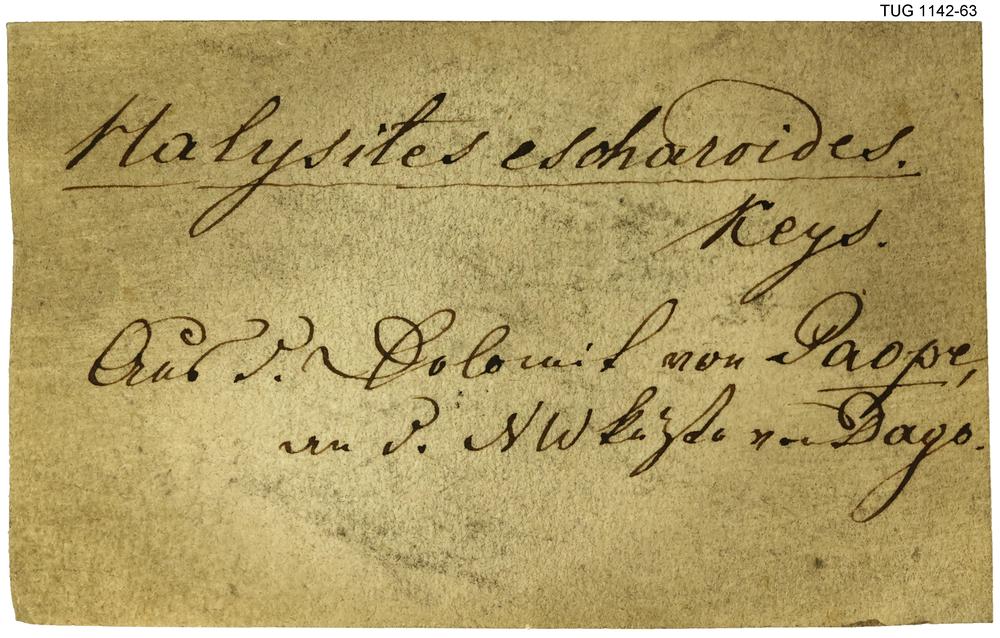 TUG 1142-63
Halysites escharoides.
Keys.
Aus d. Dolomit von Paope,
an d. NW Küste von Dago.